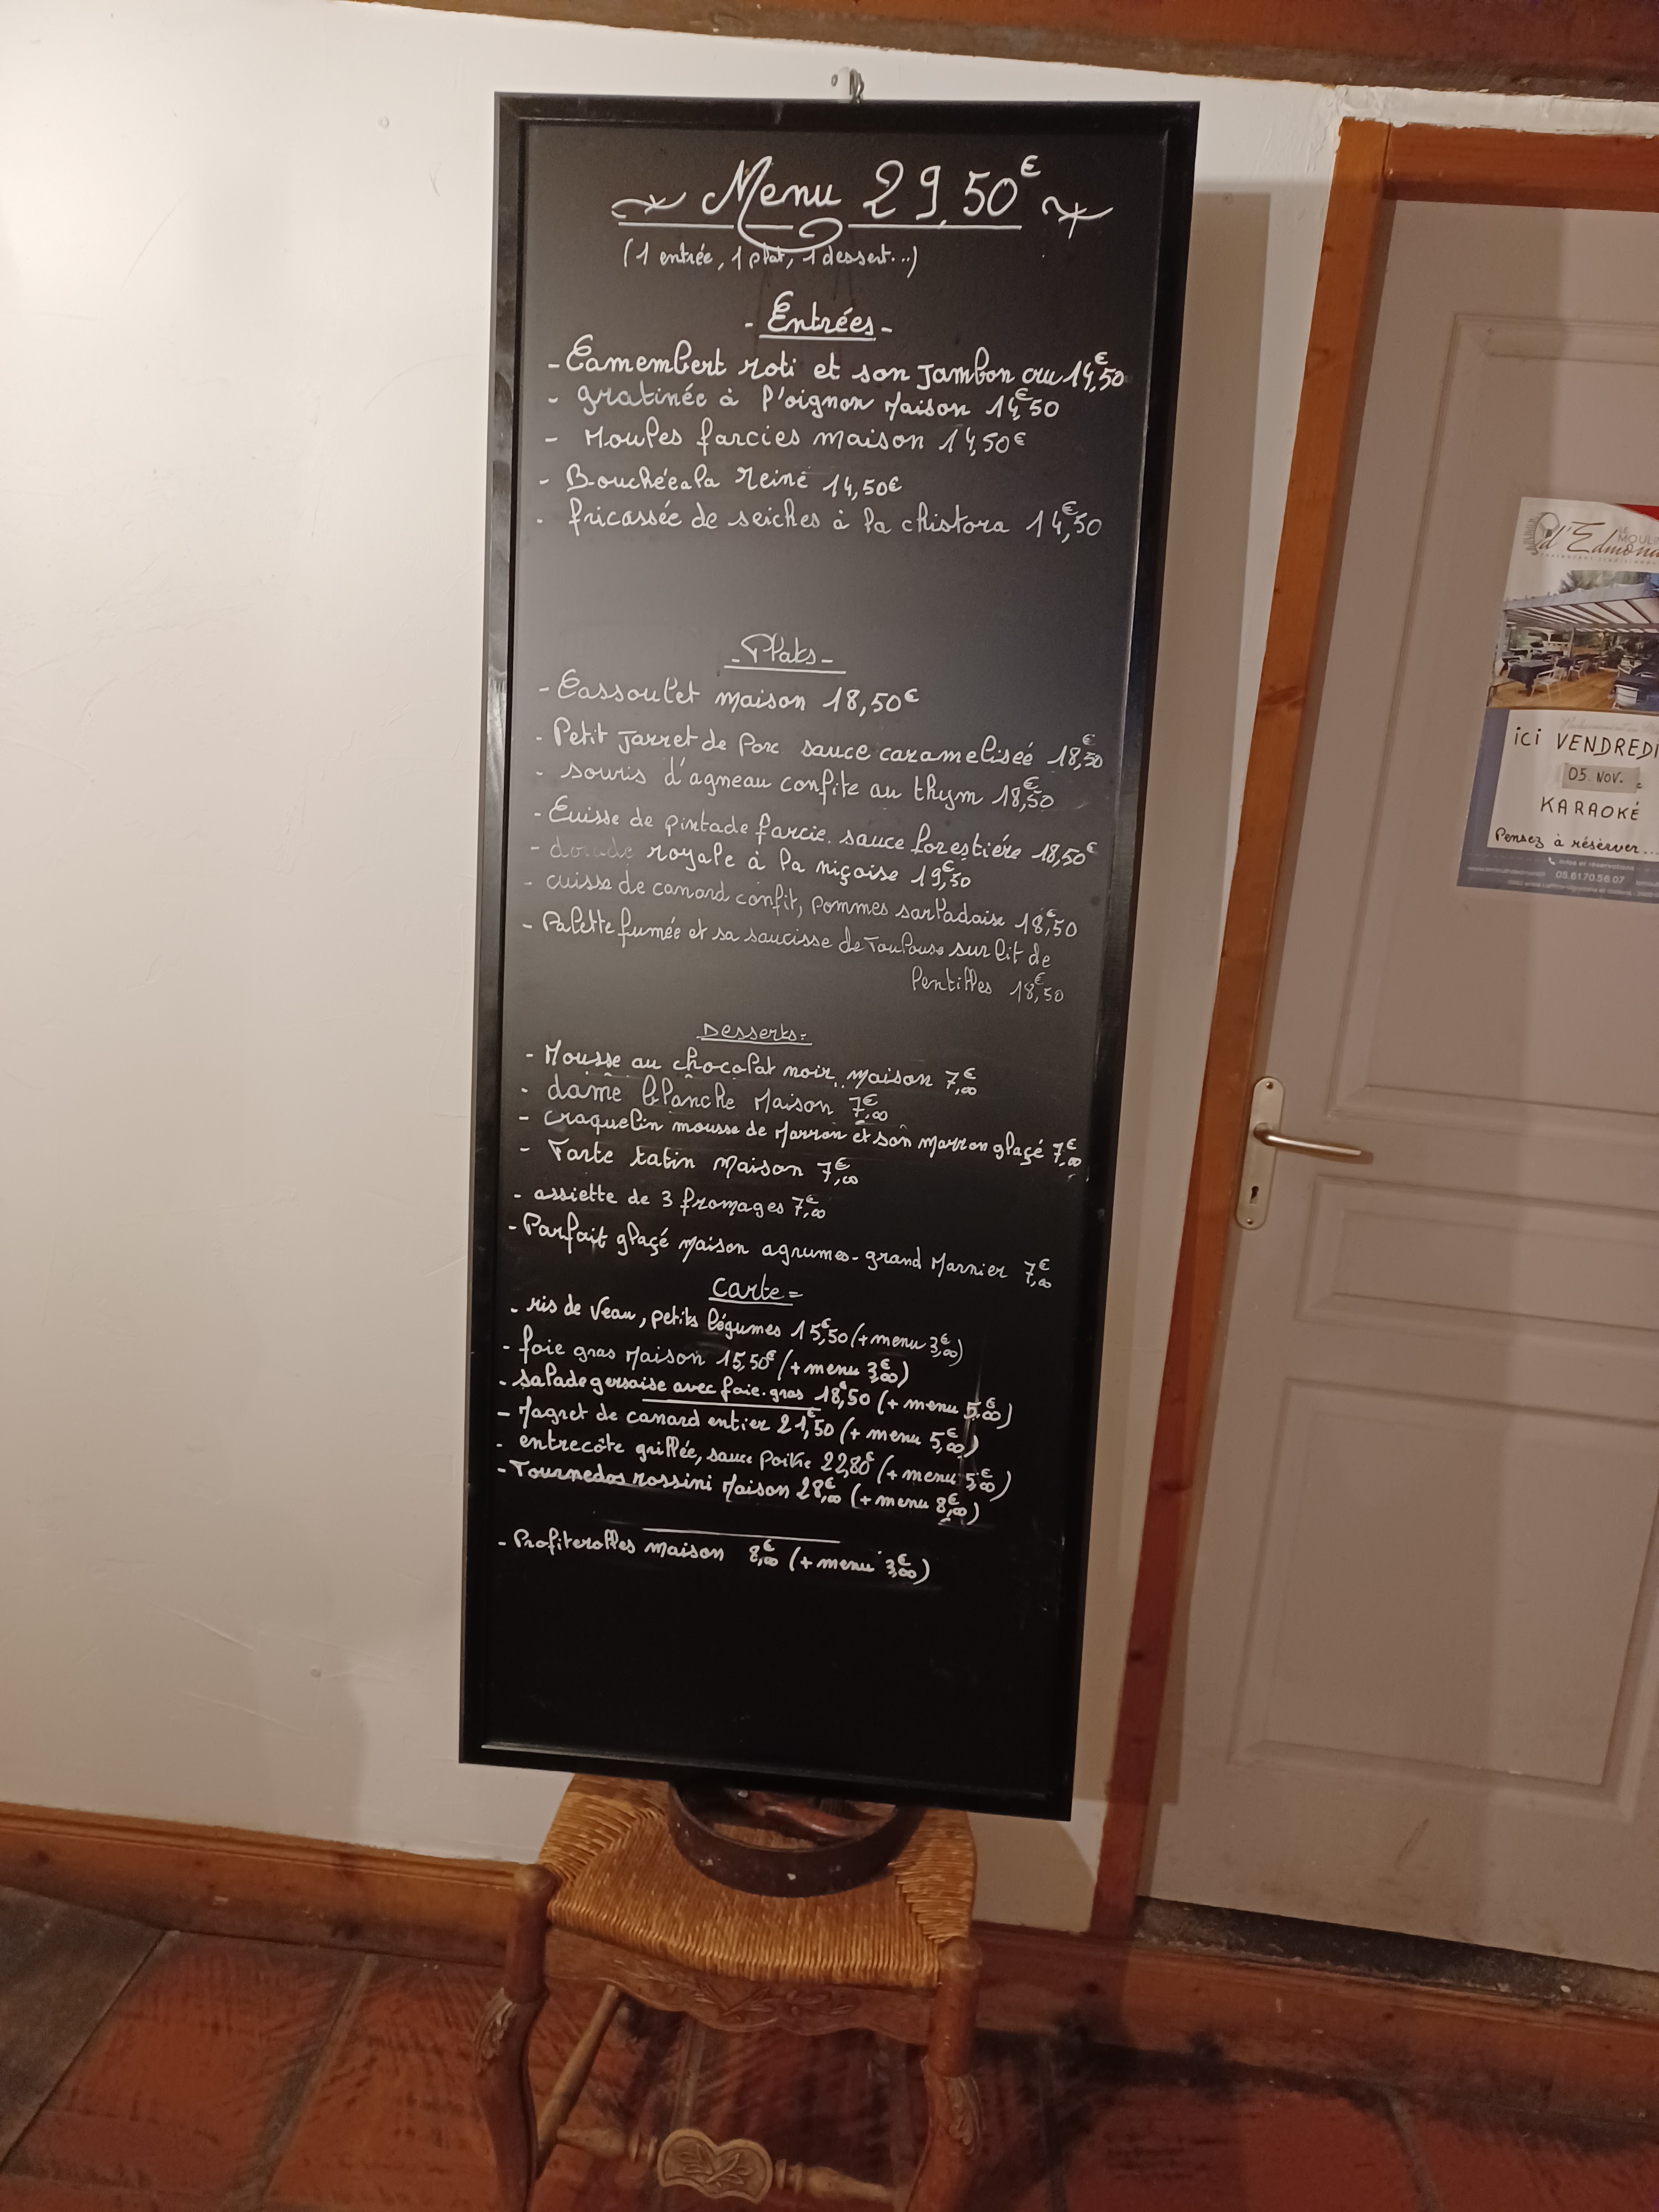 Menu 29,50€
(1 entrée, 1 plat, 1 dessert...)
- Entrées -
- Camembert roti et son Jambon cru 14,50€
- gratinée à l'oignon Maison 14,50€
- Moules farcies maison 14,50€
- Bouchée a la Reine 14,50€
- fricassée de seiches à la chistora 14,50€
- Plats -
- Cassoulet maison 18,50€
- Petit Jarret de Porc sauce carameliseé 18,50€
- souris d'agneau confite au thym 18,50€
- Cuisse de pintade farcie. sauce forestiére 18,50€
- dorade royale à la niçoise 19,50€
- cuisse de canard confit, pommes sarladaise 18,50€
- Palette fumée et sa saucisse de Toulouse sur lit de
lentilles 18,50€
Desserts =
- Mousse au chocolat noir maison 7,00€
- dame blanche Maison 7,00€
- craquelin mousse de Marron et son marron glaçé 7,00€
- Tarte tatin Maison 7,00€
- assiette de 3 fromages 7,00€
- Parfait glaçé Maison agrumes - grand Marnier 7,00€
Carte =
- ris de Veau, petits légumes 15,50€ (+ menu 3,00€)
- foie gras Maison 15,50€ (+ menu 3,00€)
- salade gersoise avec foie.gras 18,50€ (+ menu 5,00€)
- Magret de canard entier 21,50€ (+ menu 5,00€)
- entrecôte grillée, sauce Poivre 22,80€ (+ menu 5,00€)
- Tournedos rossini Maison 28,00€ (+ menu 8,00€)
- Profiterolles maison 8,00€ (+ menu 3,00€)
LE
MOULIN
d'Edmond
ici VENDREDI
05 NOV.
KARAOKÉ
Pensez à réserver...
infos et réservations
05.61.70.56.07